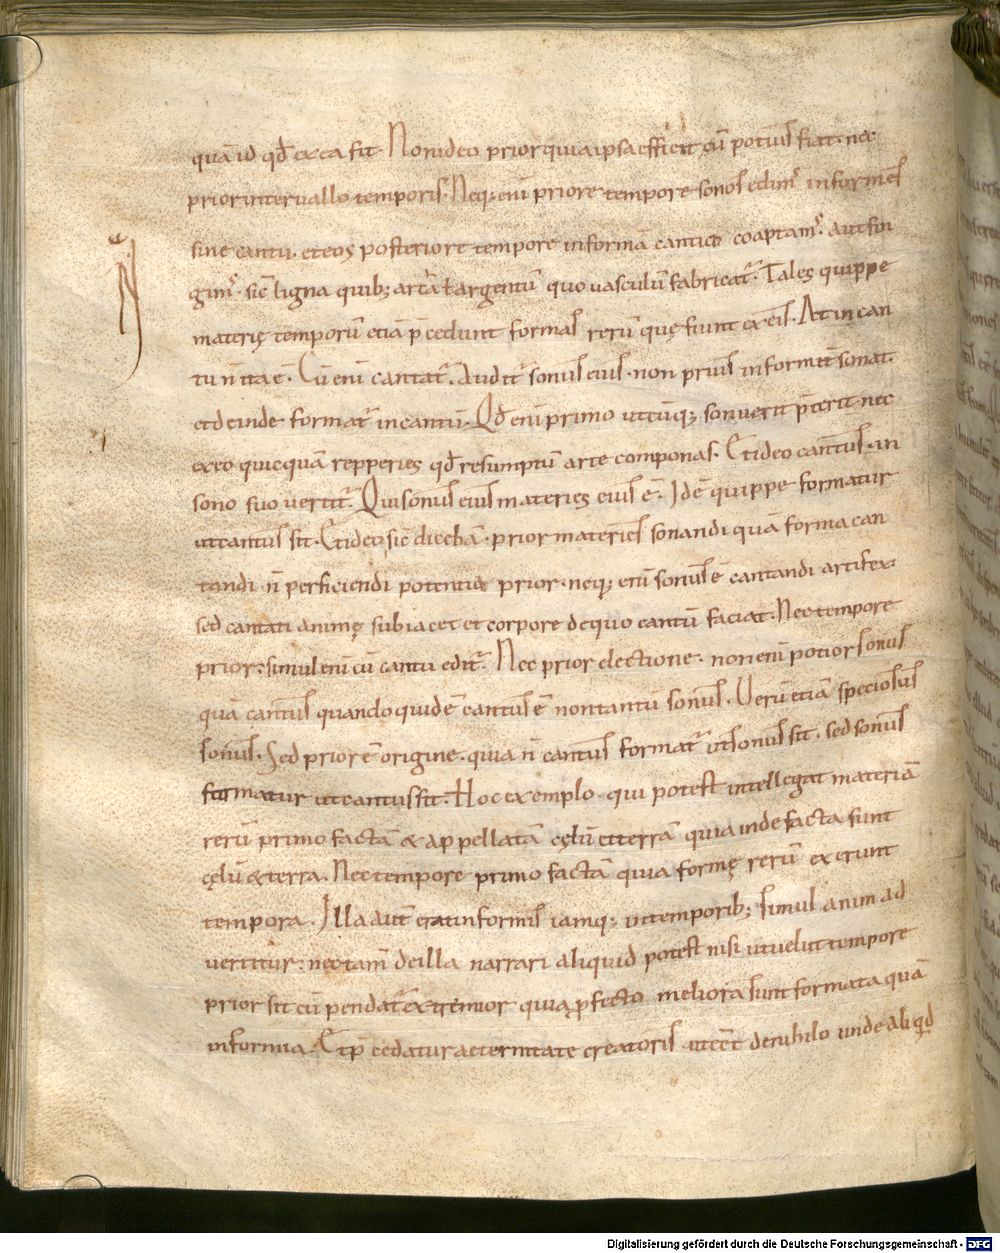 quā id qđ ex ea fit. Non ideo prior quia ipsa efficit cū potius fiat. nec
prior intervallo temporis. Neq; eni priore tempore sonos edim᷒ informes
sine cantu. et eos posteriore tempore in formā cantici coaptam᷒. aut fin
gim᷒. sic̄ ligna quib; arcā ł argentū quo vasculū fabricat᷒. Tales quippe
materię temporū etiā p̄cedunt formas rerū quę fiunt ex eis. At in can
tu n̄ ita ē. Cū eni cantat᷒. Audit᷒ sonus eius. non prius informit̄ sonat.
et deinde format᷒ in cantū. Qđ eni primo utcūq; sonuerit p̄terit. nec
ex eo quicquā repperies qđ resumptū arte componas. Et ideo cantus. in
sono suo vertit᷒. Qui sonus eius materies eius ē. Idē quippe formatur
ut cantus sit. Et ideo sic̄ dicebā. prior materies sonandi quā forma can
tandi. n̄ perficiendi potentia prior. neq; eni sonus ē cantandi artifex.
sed cantati animę subiacet et corpore de quo cantū faciat. Nec tempore
prior. simul eni cū cantu edit᷒. Nec prior electione. non eni potior sonus
quā cantus quando quidē cantus ē non tantū sonus. Verū etiā speciosus
sonus. Sed prior ē origine. quia n̄ cantus format᷒ ut sonus sit. sed sonus
formatur ut cantus sit. Hoc exemplo. qui potest intellegat materiā
rerū primo factā & appellatā cęlū et terrā quia inde facta sunt
cęlū & terra. Nec tempore primo factā quia formę rerū exerunt
tempora. Illa aut̄ erat informis iamq; in temporib; simul anim ad
vertitur. nec tam̄ de illa narrari aliquid potest nisi ut velut tempore
prior sit cū pendat᷒ extremior quia p̄fecto meliora sunt formata quā
informia. Et p̄cedatur aeternitate creatoris ut eēt de nihilo unde aliqđ